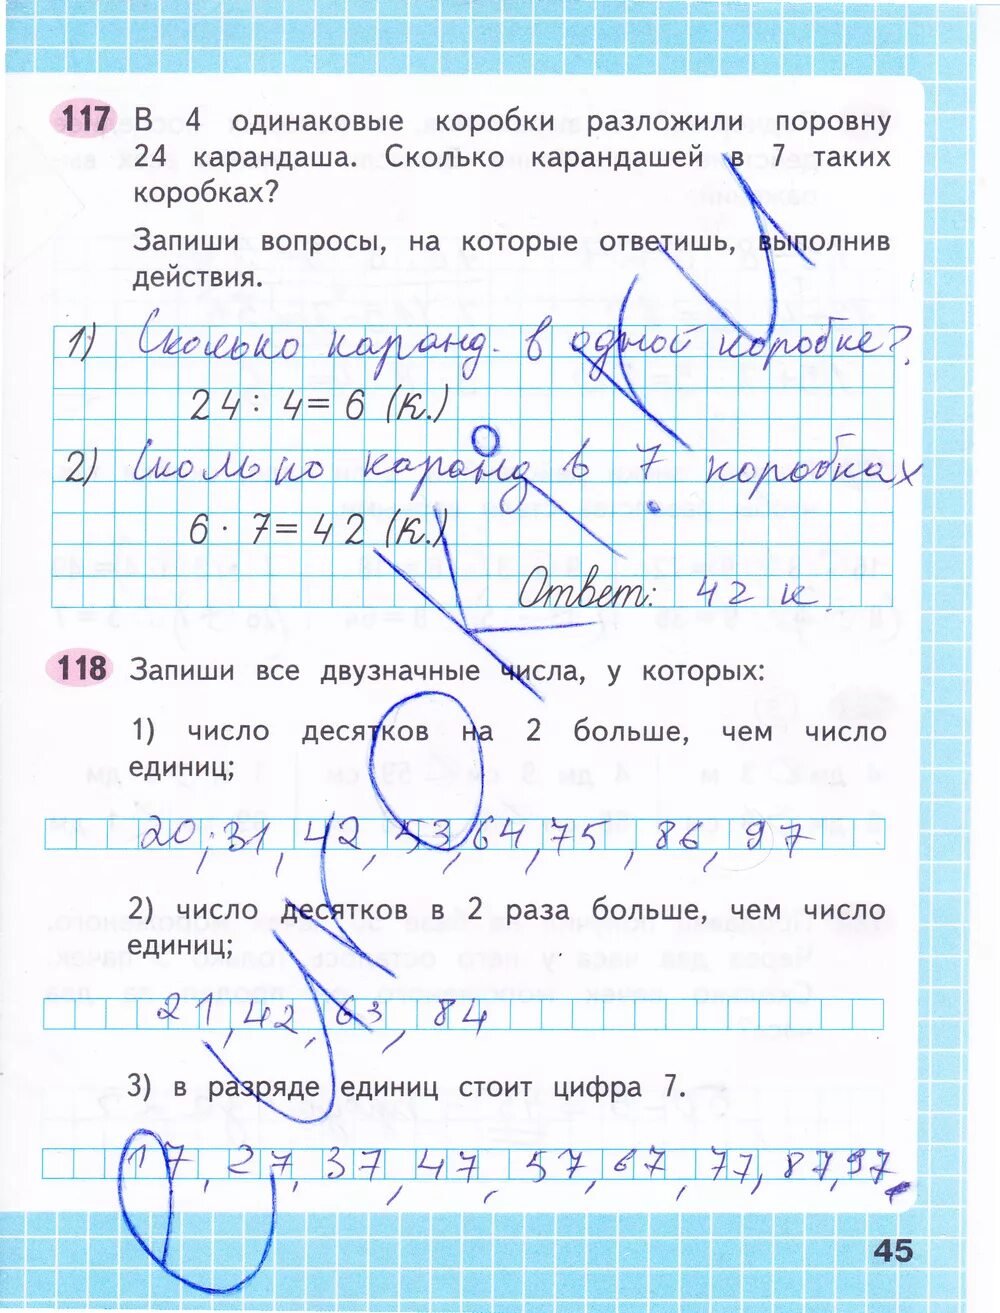 117 В 4 одинаковые коробки разложили поровну
24 карандаша. Сколько карандашей в 7 таких
коробках?
Запиши вопросы, на которые ответишь, выполнив
действия.
1) Сколько каранд. в одной коробке?
24 : 4 = 6 (к.)
2) Сколько каранд в 7 коробках
6 · 7 = 42 (к.)
Ответ: 42 к.
118 Запиши все двузначные числа, у которых:
1) число десятков на 2 больше, чем число
единиц;
20, 31, 42, 53, 64, 75, 86, 97
2) число десятков в 2 раза больше, чем число
единиц;
21, 42, 63, 84
3) в разряде единиц стоит цифра 7.
17, 27, 37, 47, 57, 67, 77, 87, 97.
45